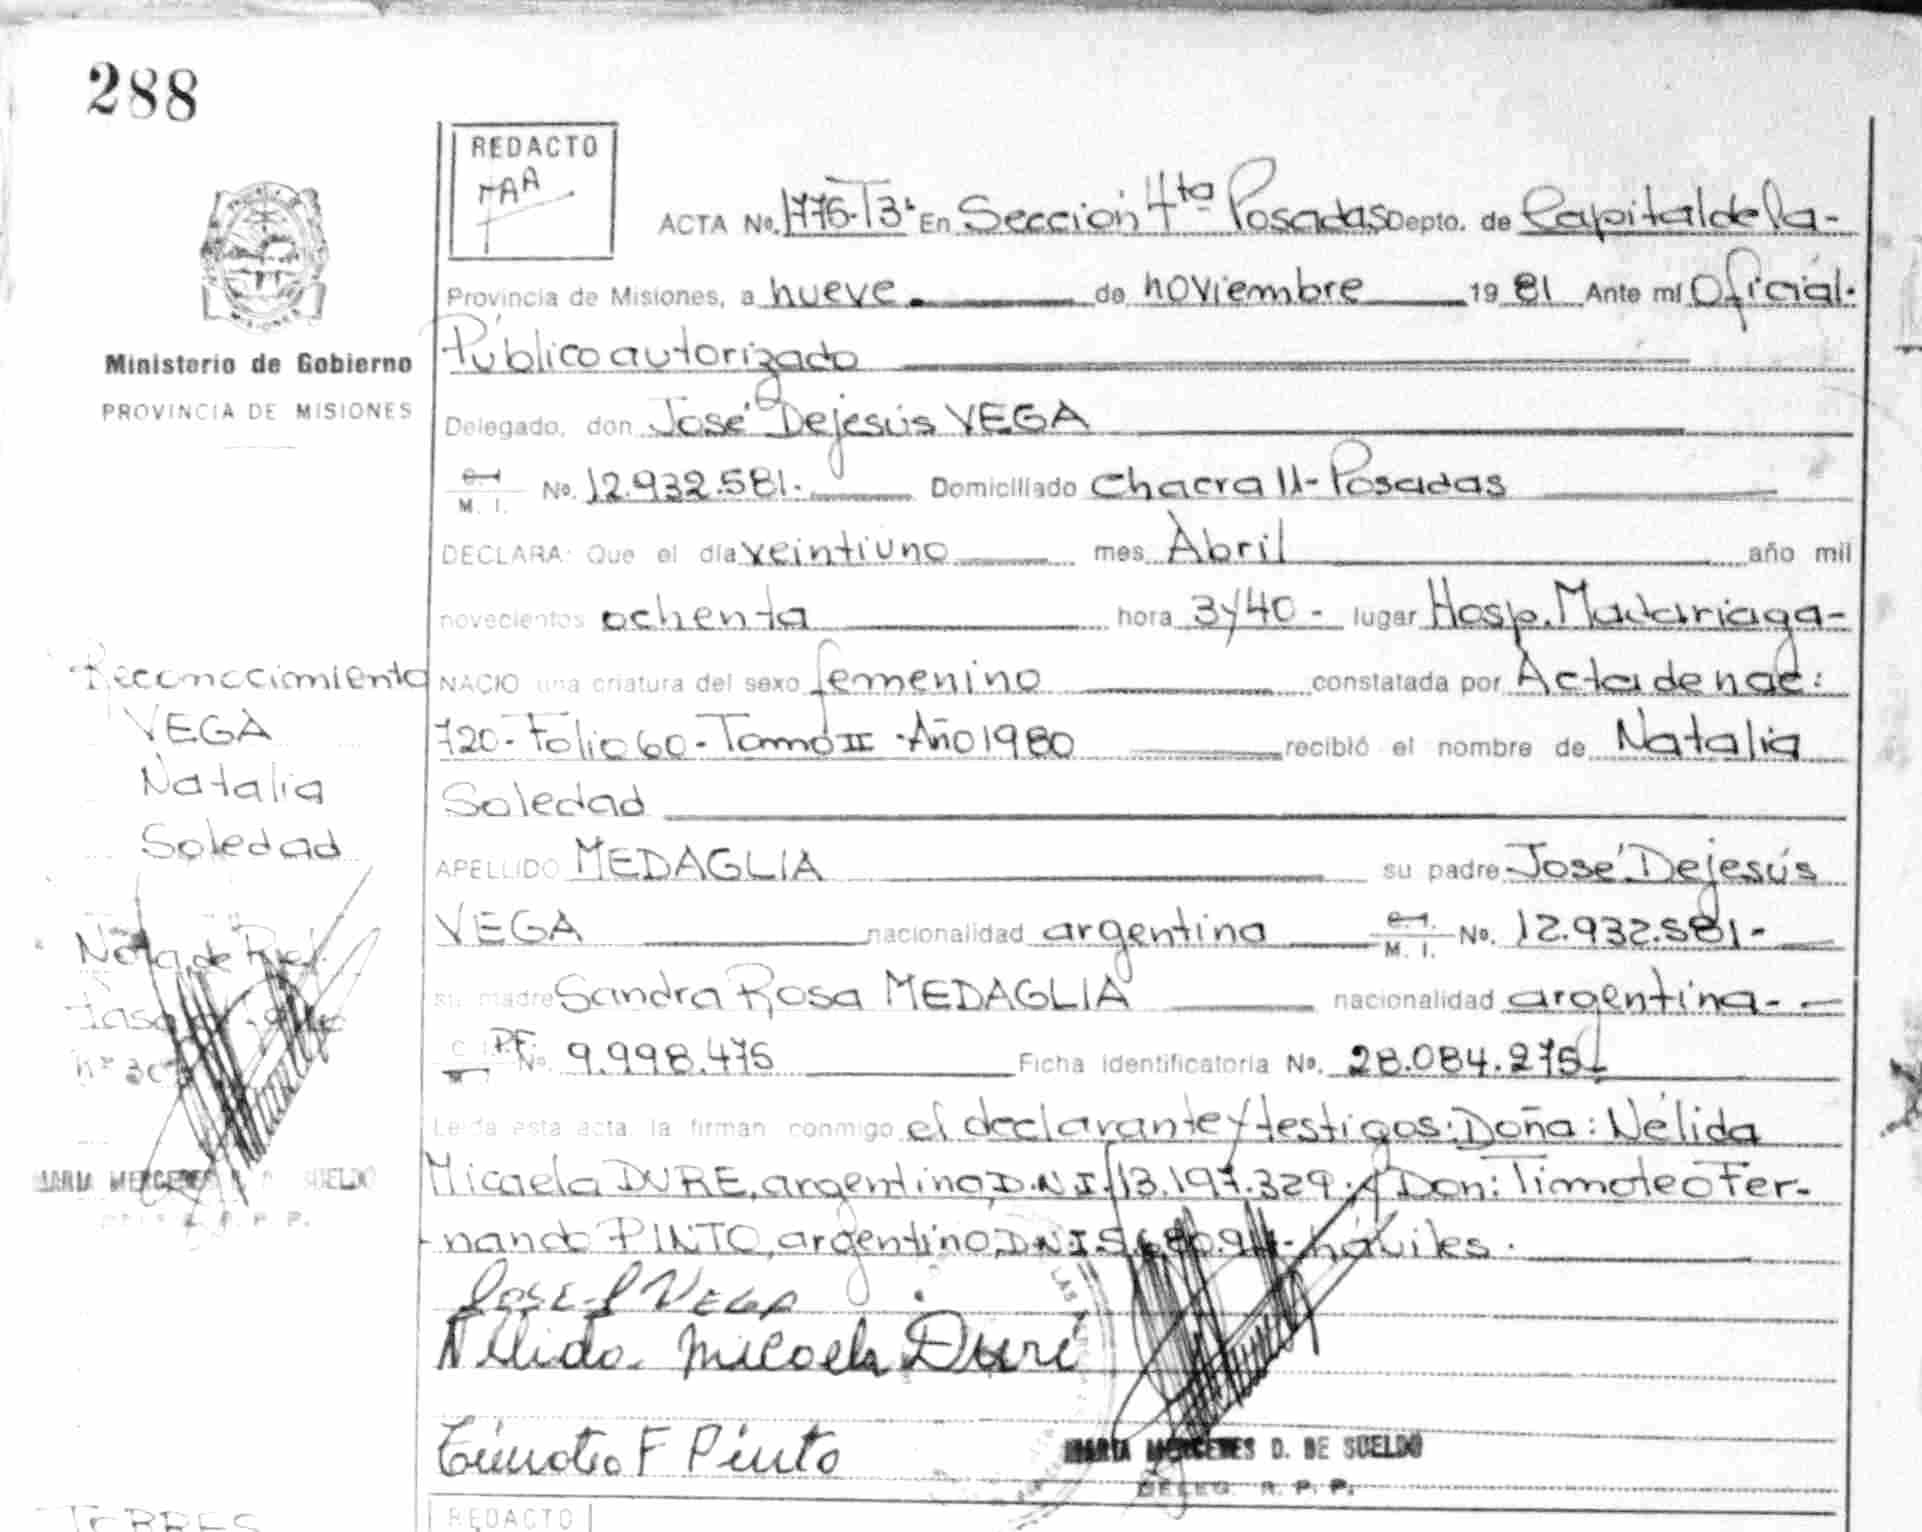 288
REDACTO
ACTA No. 1776-T3º En Sección 4ta Posadas Depto. de Capital de la-
Provincia de Misiones, a nueve de noviembre 19 81 Ante mí Oficial.
MISIONES
Ministerio de Gobierno
PROVINCIA DE MISIONES
Público autorizado
Delegado, don José Dejesús VEGA
M. I. No. 12.932.581.- Domiciliado Chacra 11- Posadas
DECLARA: Que el día veintiuno mes Abril año mil
novecientos ochenta hora 3y40- lugar Hosp. Madariaga-
Reconocimiento
VEGA
Natalia
Soledad
NACIO una criatura del sexo femenino constatada por Acta de nac:
720- Folio 60- Tomo II -Año 1980 recibió el nombre de Natalia
Soledad
APELLIDO MEDAGLIA su padre José Dejesús
VEGA nacionalidad argentina M. I. No. 12.932.581-
su madre Sandra Rosa MEDAGLIA nacionalidad argentina-
No. 9.998.475 Ficha identificatoria No. 28.084.275
Nota de
MARIA MERCEDES
Leída esta acta, la firman conmigo el declarante y testigos: Doña: Nélida
Micaela DURE, argentina, D.N.I. 13.197.329. y Don: Timoteo Fer-
-nando PINTO, argentino, D.N.I. háviles.
JOSE J VEGA
Nélida Micaela Duré
Timoteo F Pinto
MARIA MERCEDES D. DE SUELDO
DELEG. R. P. P.
TORRES
REDACTO